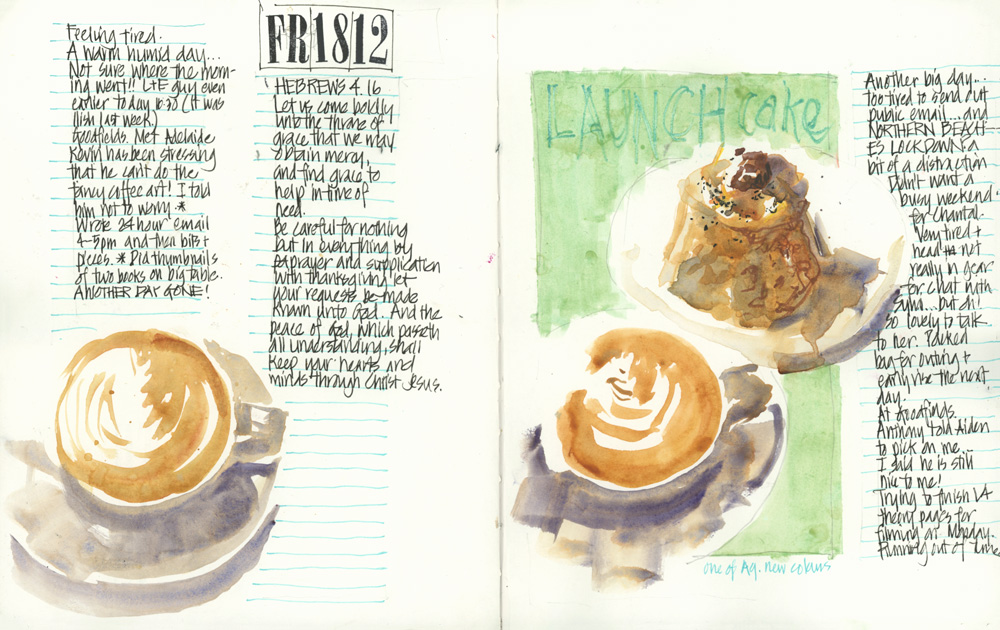 Feeling tired.
A warm humid day...
Not sure where the morn-
ing went!! LtE guy even
earlier today 10:30 (it was
11ish last week.)
Goodfields. Met Adelaide
Kevin has been stressing
that he can't do the
fancy coffee art! I told
him not to worry. *
Wrote 24 hour email
4-5pm and then bits +
pieces. * Did thumbnails
of two books on big table.
ANOTHER DAY GONE!
FR 18 12
HEBREWS 4.16
Let us come boldly
unto the throne of
grace that we may
obtain mercy,
and find grace to
help in time of
need.
Be careful for nothing
but in everything by
prayer and supplication
with thanksgiving let
your requests be made
known unto God. And the
peace of God, which passeth
all understanding, shall
keep your hearts and
minds through Christ Jesus.
LAUNCH cake
one of Aq. new colours
Another big day...
too tired to send out
public email... and
NORTHERN BEACH-
ES LOCKDOWN a
bit of a distraction
Didn't want a
busy weekend
for Chantal.
Very tired +
head not
really in gear
for chat with
... but oh!
so lovely to talk
to her. Packed
bag for outing +
early rise the next
day.
At Goodfields.
Anthony told Aiden
to pick on me...
I said he is still
nice to me!
Trying to finish L4
theory pages for
filming on Monday.
Running out of time